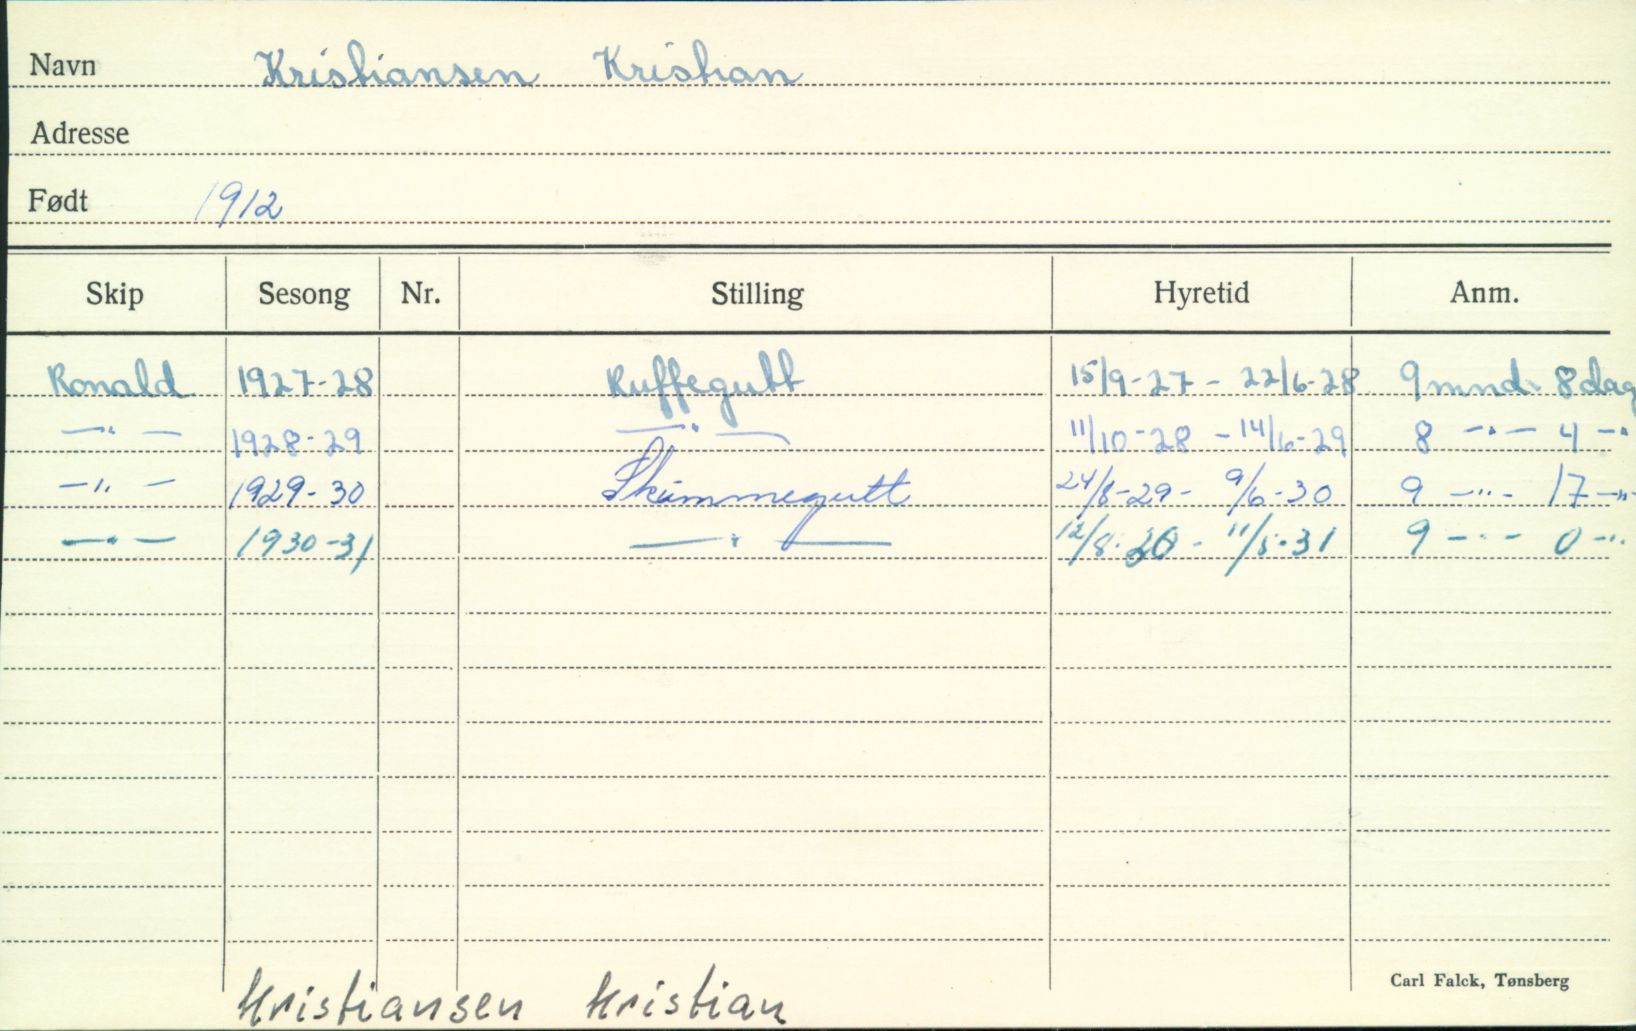 Navn Kristiansen Kristian
Adresse
Født 1912
Skip Sesong Nr. Stilling Hyretid Anm.
Ronald 1927-28 Ruffegutt 15/9-27 - 22/6-28 9 mnd. 8 dag
—"— 1928-29 —"— 11/10-28 - 14/6-29 8 —"— 4 —"
—"— 1929-30 Skummegutt 24/8-29 - 9/6-30 9 —"— 17 —"—
—"— 1930-31 —"— 12/8-30 - 11/5-31 9 —"— 0 —"
Carl Falck, Tønsberg
Kristiansen Kristian